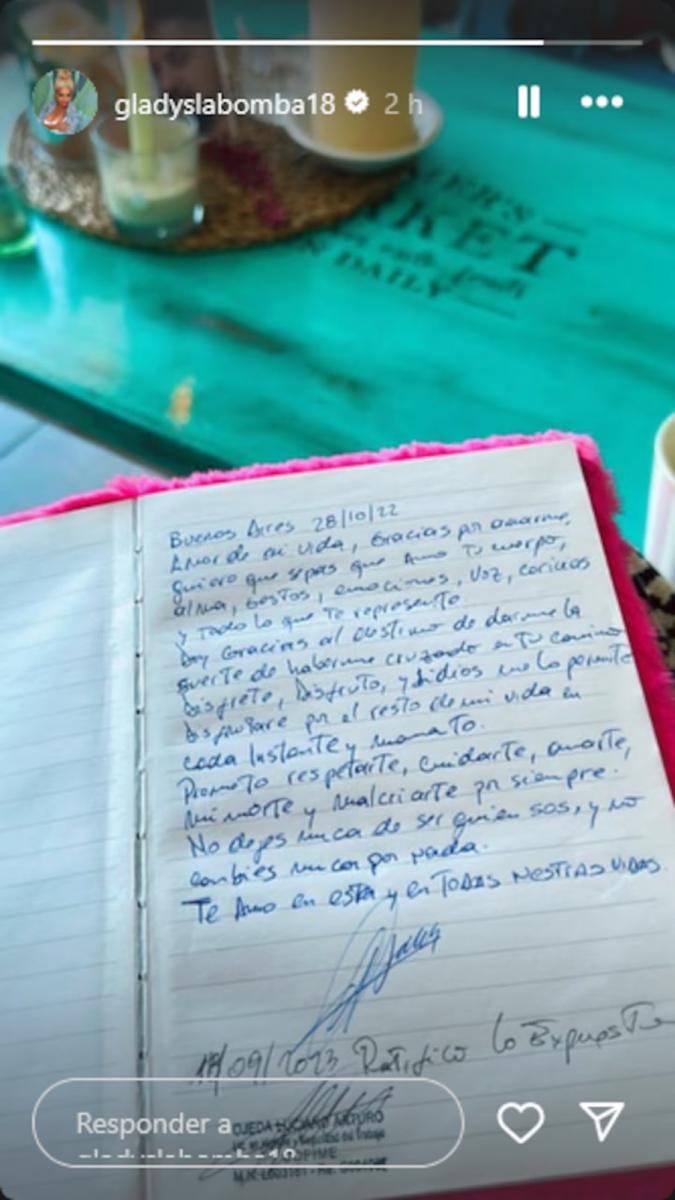 gladyslabomba18 2 h
KET
DAILY
Buenos Aires 28/10/22
Amor de mi vida, Gracias por amarme,
quiero que sepas que Amo Tu cuerpo,
alma, Gestos, emociones, Voz, caricias
y Todo lo que Te representa.
Doy Gracias al destino de darme la
suerte de haberme cruzado en Tu camino
Disfrete, Disfruto, y si dios me lo permite
disfrutare por el resto de mi vida en
cada Instante y momento.
Prometo respetarte, cuidarte, amarte,
mimarte y malcriarte por siempre.
No dejes nunca de ser quien sos, y no
cambies nunca por nada.
Te Amo en esta y en TODAS NESTRAS VIDAS.
/09/2023 Ratifico lo Expuesto
OJEDA LUCIANO ARTURO
Responder a
gladyslabomba18